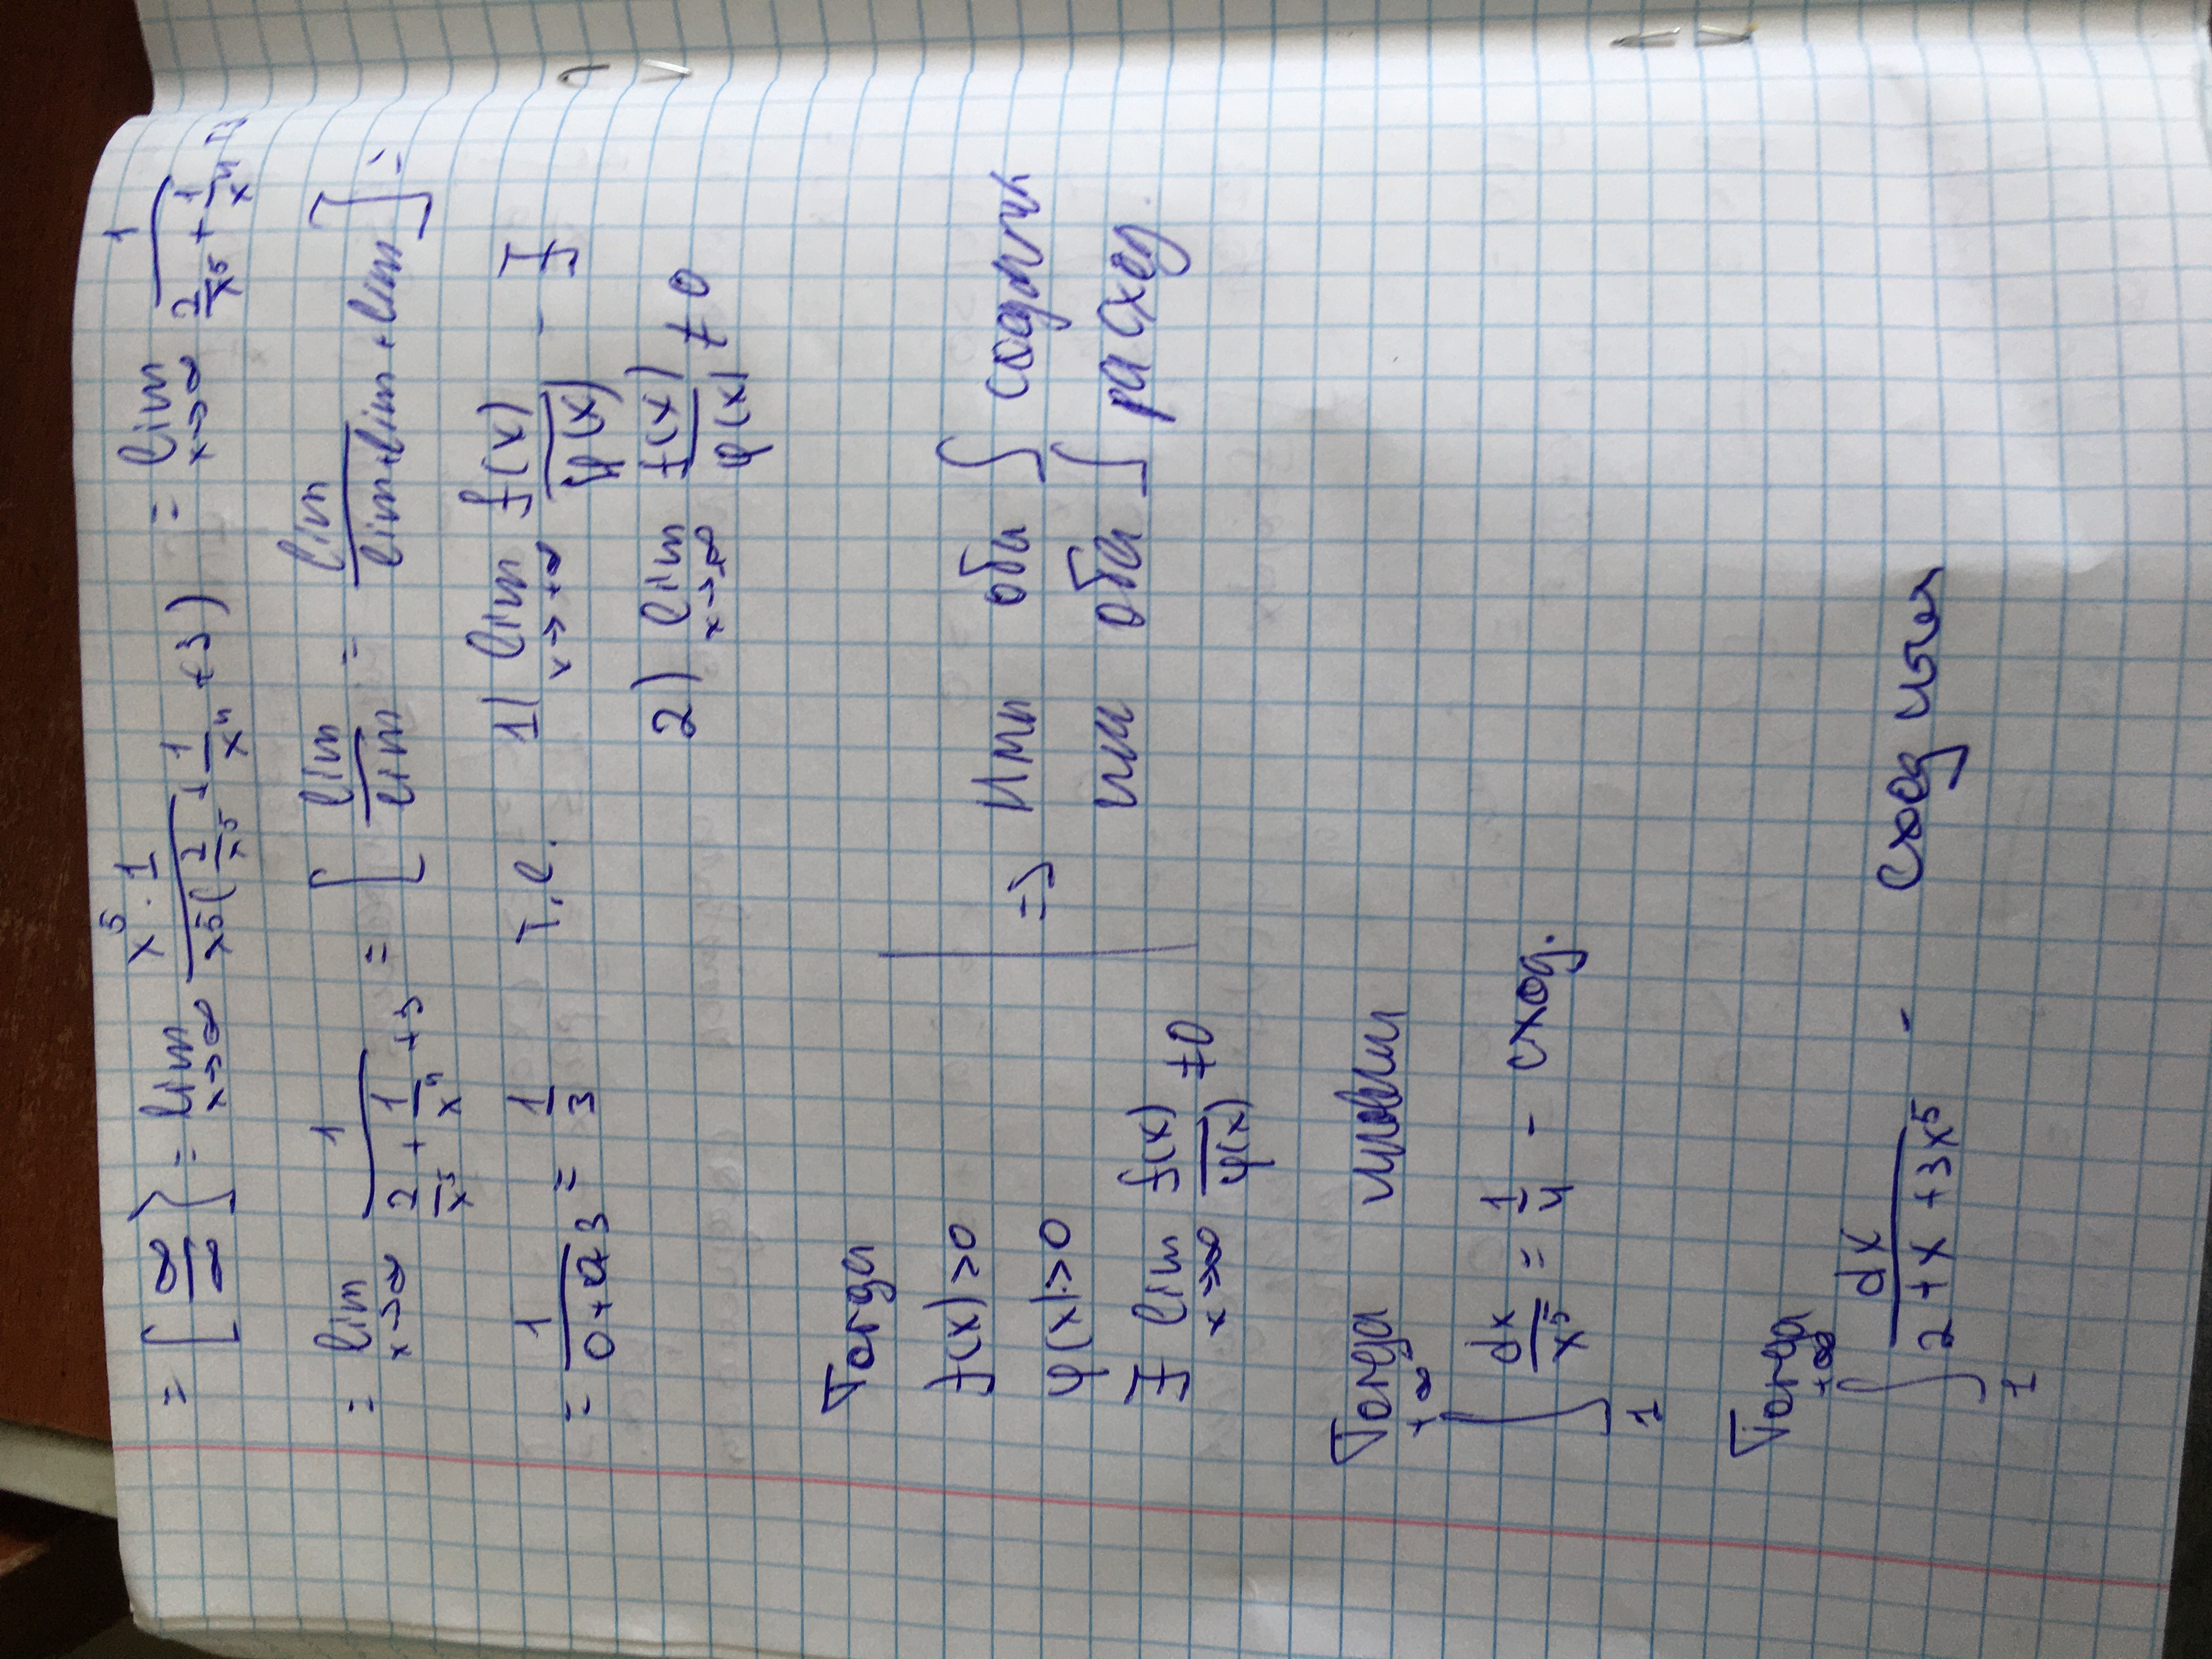 = [∞/∞} = lim x→∞ x⁵·1 / x⁵(2/x⁵ + 1/x⁴ + 3) = lim x→∞ 1 / 2/x⁵ + 1/x⁴ +3
= lim x→∞ 1 / 2/x⁵ + 1/x⁴ + 3 = [lim/lim = lim / lim+lim+lim] =
= 1 / 0+0+3 = 1/3 т.е. 1) lim x→+∞ f(x)/φ(x) - ∃
2) lim x→+∞ f(x)/φ(x) ≠ 0
Тогда
f(x)>0
φ(x)>0
∃ lim x→∞ f(x)/φ(x) ≠0
=> Или оба ∫ сходятся
или оба ∫ расход.
Тогда
+∞ ∫ 1 dx/x⁵ = 1/4 - сход.
Тогда
+∞ ∫ 1 dx / 2+x+3x⁵ - сходится